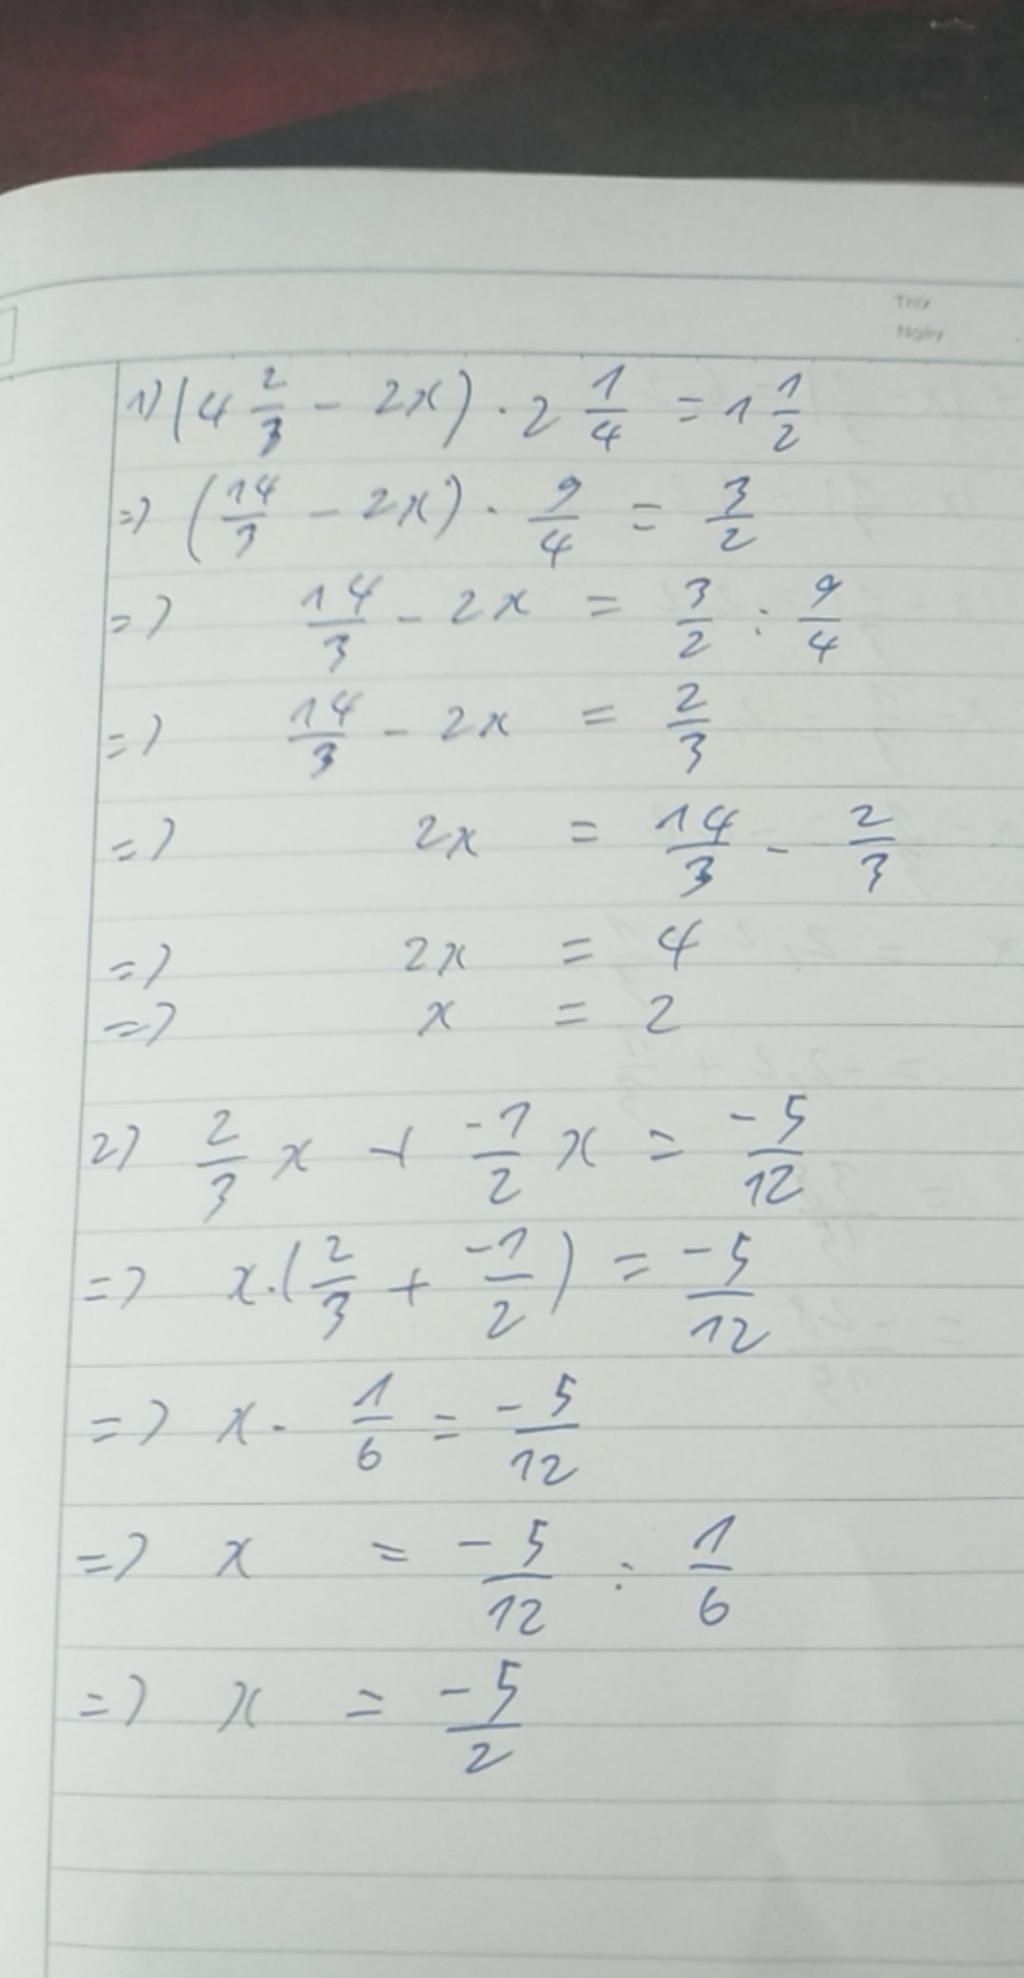 Thứ
Ngày
1) (4 2/3 - 2x) . 2 1/4 = 1 1/2
=> (14/3 - 2x) . 9/4 = 3/2
=> 14/3 - 2x = 3/2 : 9/4
=> 14/3 - 2x = 2/3
=> 2x = 14/3 - 2/3
=> 2x = 4
=> x = 2
2) 2/3 x + -1/2 x = -5/12
=> x.(2/3 + -1/2) = -5/12
=> x . 1/6 = -5/12
=> x = -5/12 : 1/6
=> x = -5/2